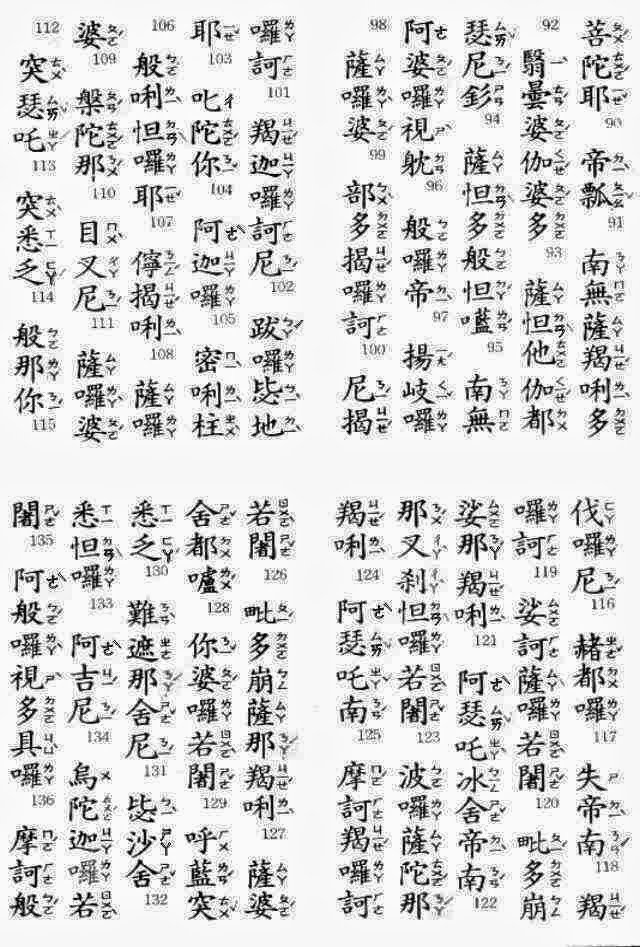 菩陀耶 90 帝瓢 91 南無薩羯唎多
92 翳曇婆伽婆多 93 薩怛他伽都
瑟尼釤 94 薩怛多般怛囕 95 南無
阿婆囉視躭 96 般囉帝 97 揚岐囉
98 薩囉婆 99 部多揭囉訶 100 尼揭
囉訶 101 羯迦囉訶尼 102 跋囉毖地
耶 103 叱陀你 104 阿迦囉 105 密唎柱
106 般唎怛囉耶 107 儜揭唎 108 薩囉
婆 109 槃陀那 110 目叉尼 111 薩囉婆
112 突瑟吒 113 突悉乏 114 般那你 115
伐囉尼 116 赭都囉 117 失帝南 118 羯
囉訶 119 娑訶薩囉若闍 120 毗多崩
娑那羯唎 121 阿瑟吒冰舍帝南 122
那叉剎怛囉若闍 123 波囉薩陀那
羯唎 124 阿瑟吒南 125 摩訶羯囉訶
若闍 126 毗多崩薩那羯唎 127 薩婆
舍都嚧 128 你婆囉若闍 129 呼藍突
悉乏 130 難遮那舍尼 131 毖沙舍 132
悉怛囉 133 阿吉尼 134 烏陀迦囉若
闍 135 阿般囉視多具囉 136 摩訶般